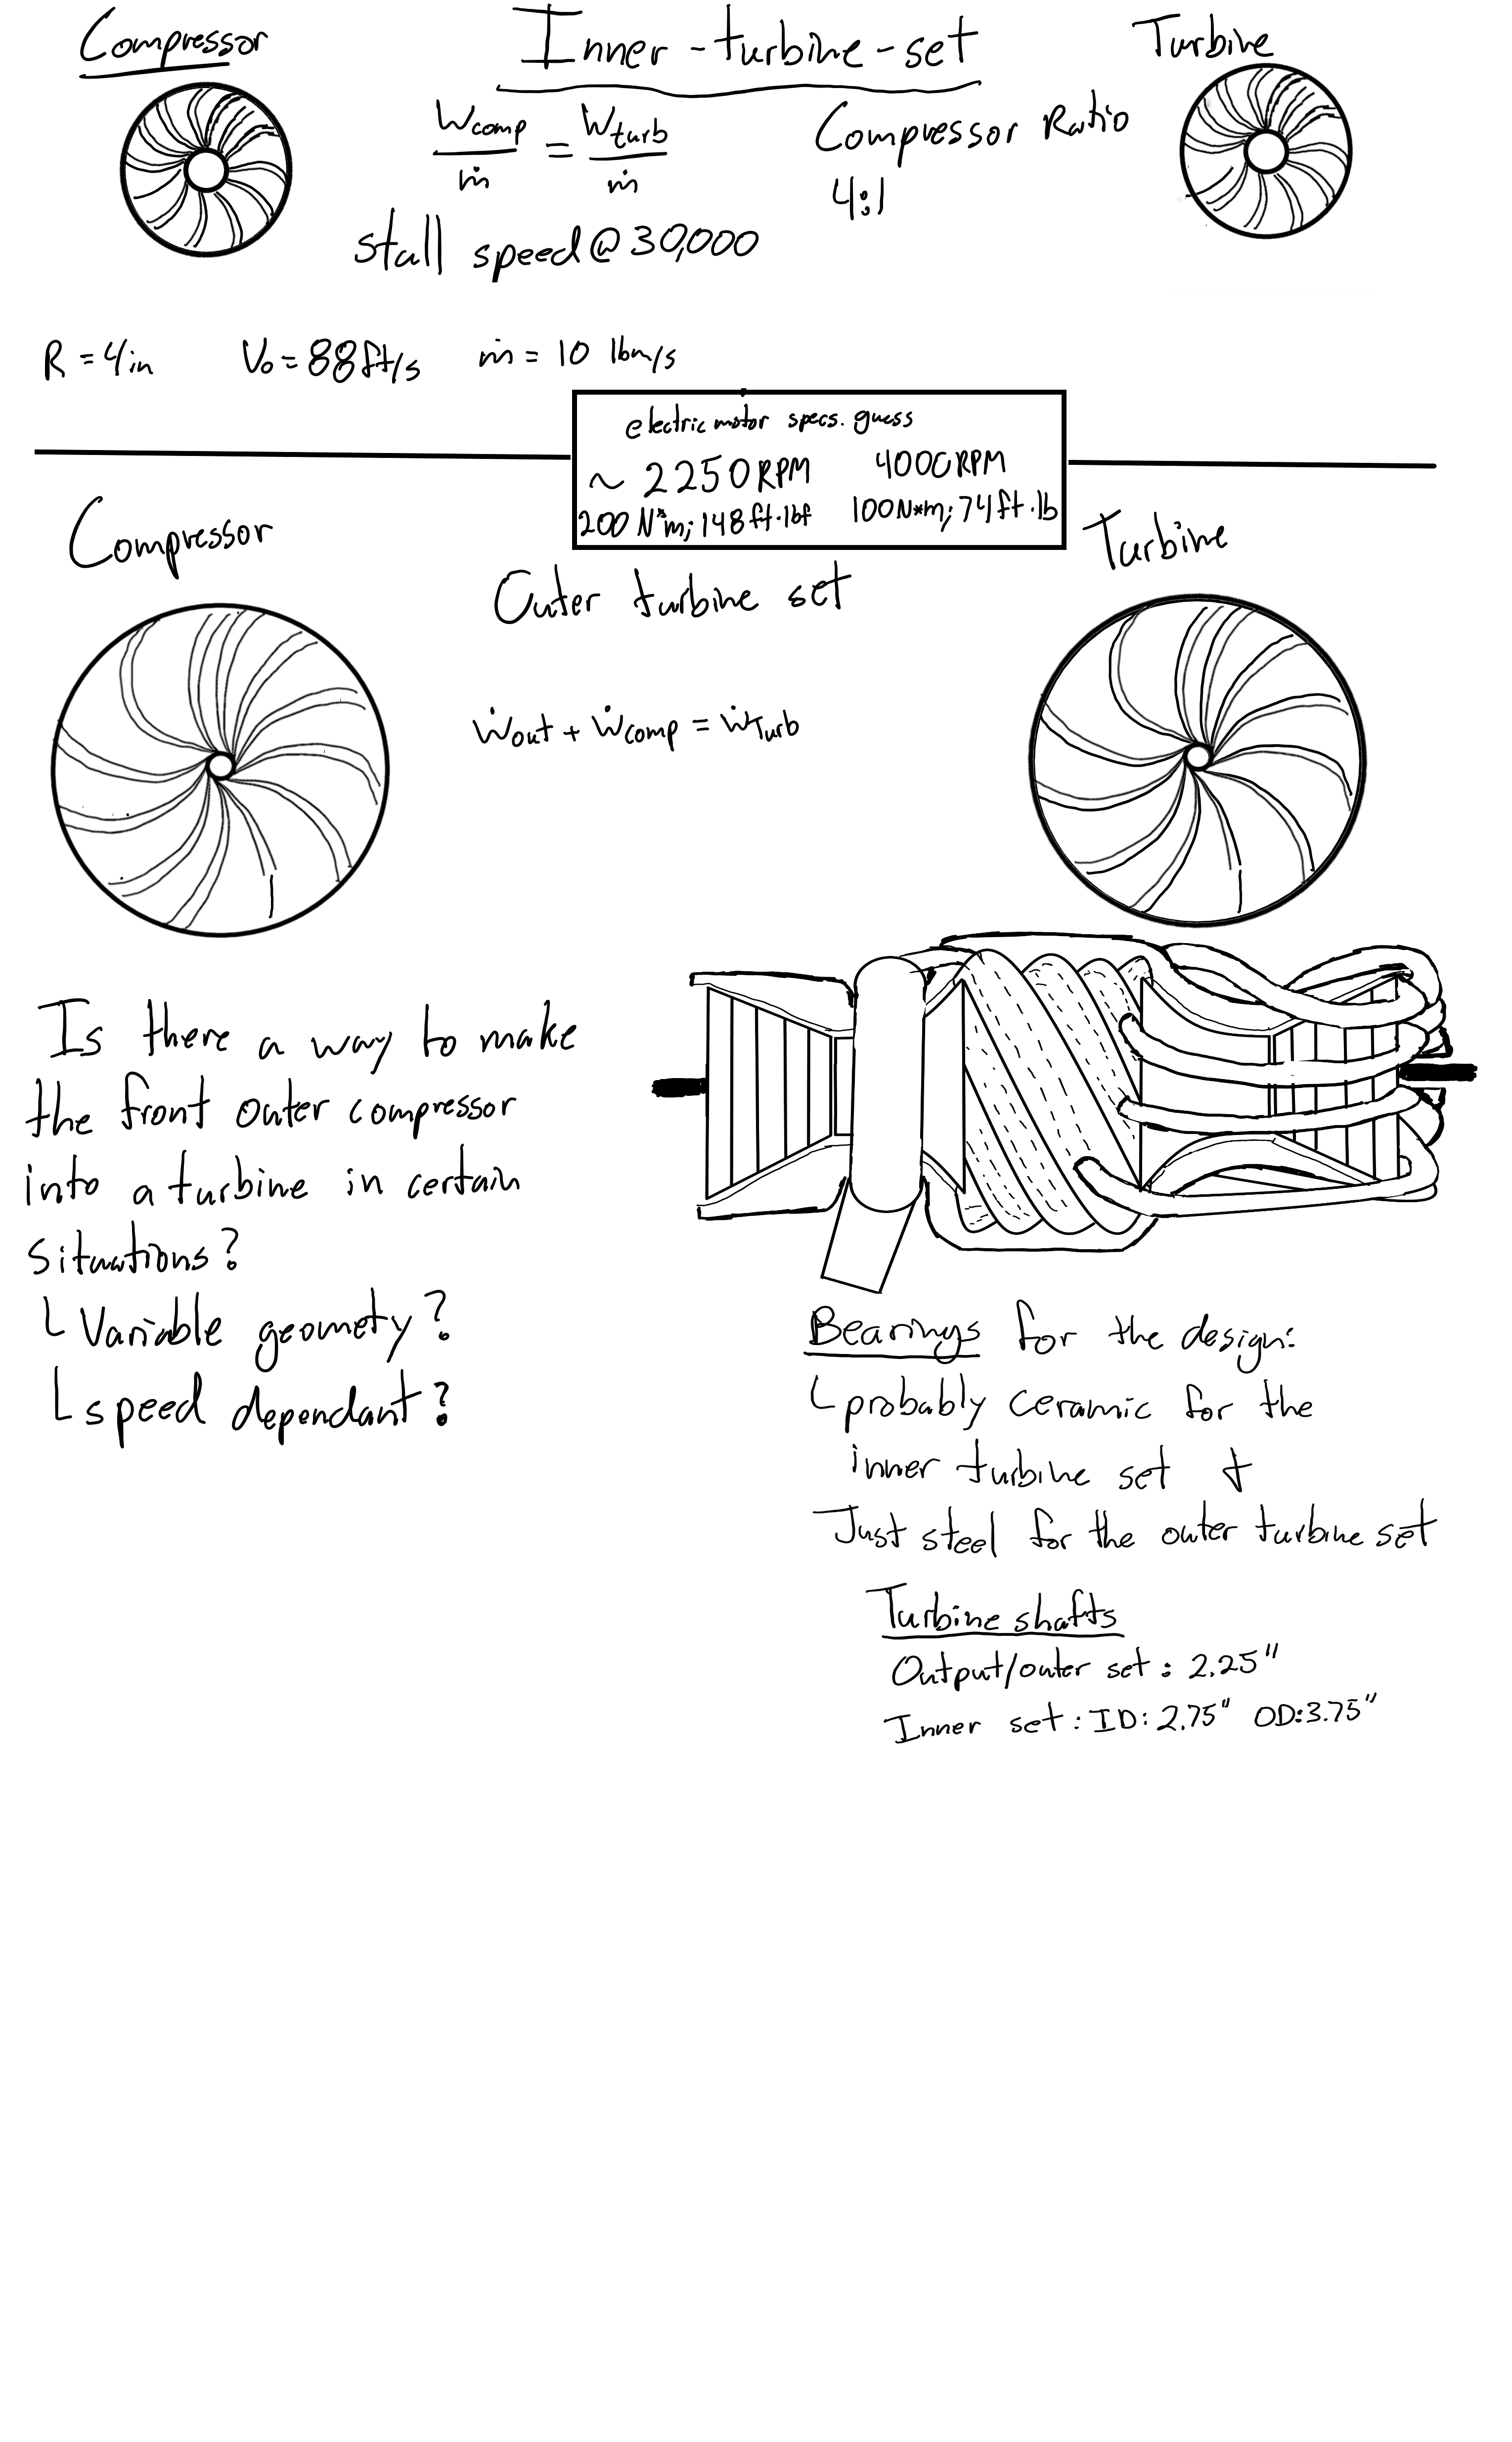 Compressor
Inner-turbine-set
Turbine
Wcomp/ṁ = Wturb/ṁ
Compressor Ratio
4:1
stall speed @ 30,000
R = 4in V₀ = 88ft/s ṁ = 10 lbm/s
electric motor specs. guess
~ 2250RPM 4000RPM
200 N*m; 148 ft·lbf 100N*m; 74ft·lb
Compressor
Turbine
Outer turbine set
Ẇout + Ẇcomp = ẆTurb
Is there a way to make
the front outer compressor
into a turbine in certain
situations?
└ Variable geomety?
└ speed dependant?
Bearings for the design:
└ probably ceramic for the
inner turbine set &
Just steel for the outer turbine set
Turbine shafts
Output/outer set: 2.25"
Inner set: ID: 2.75" OD: 3.75"